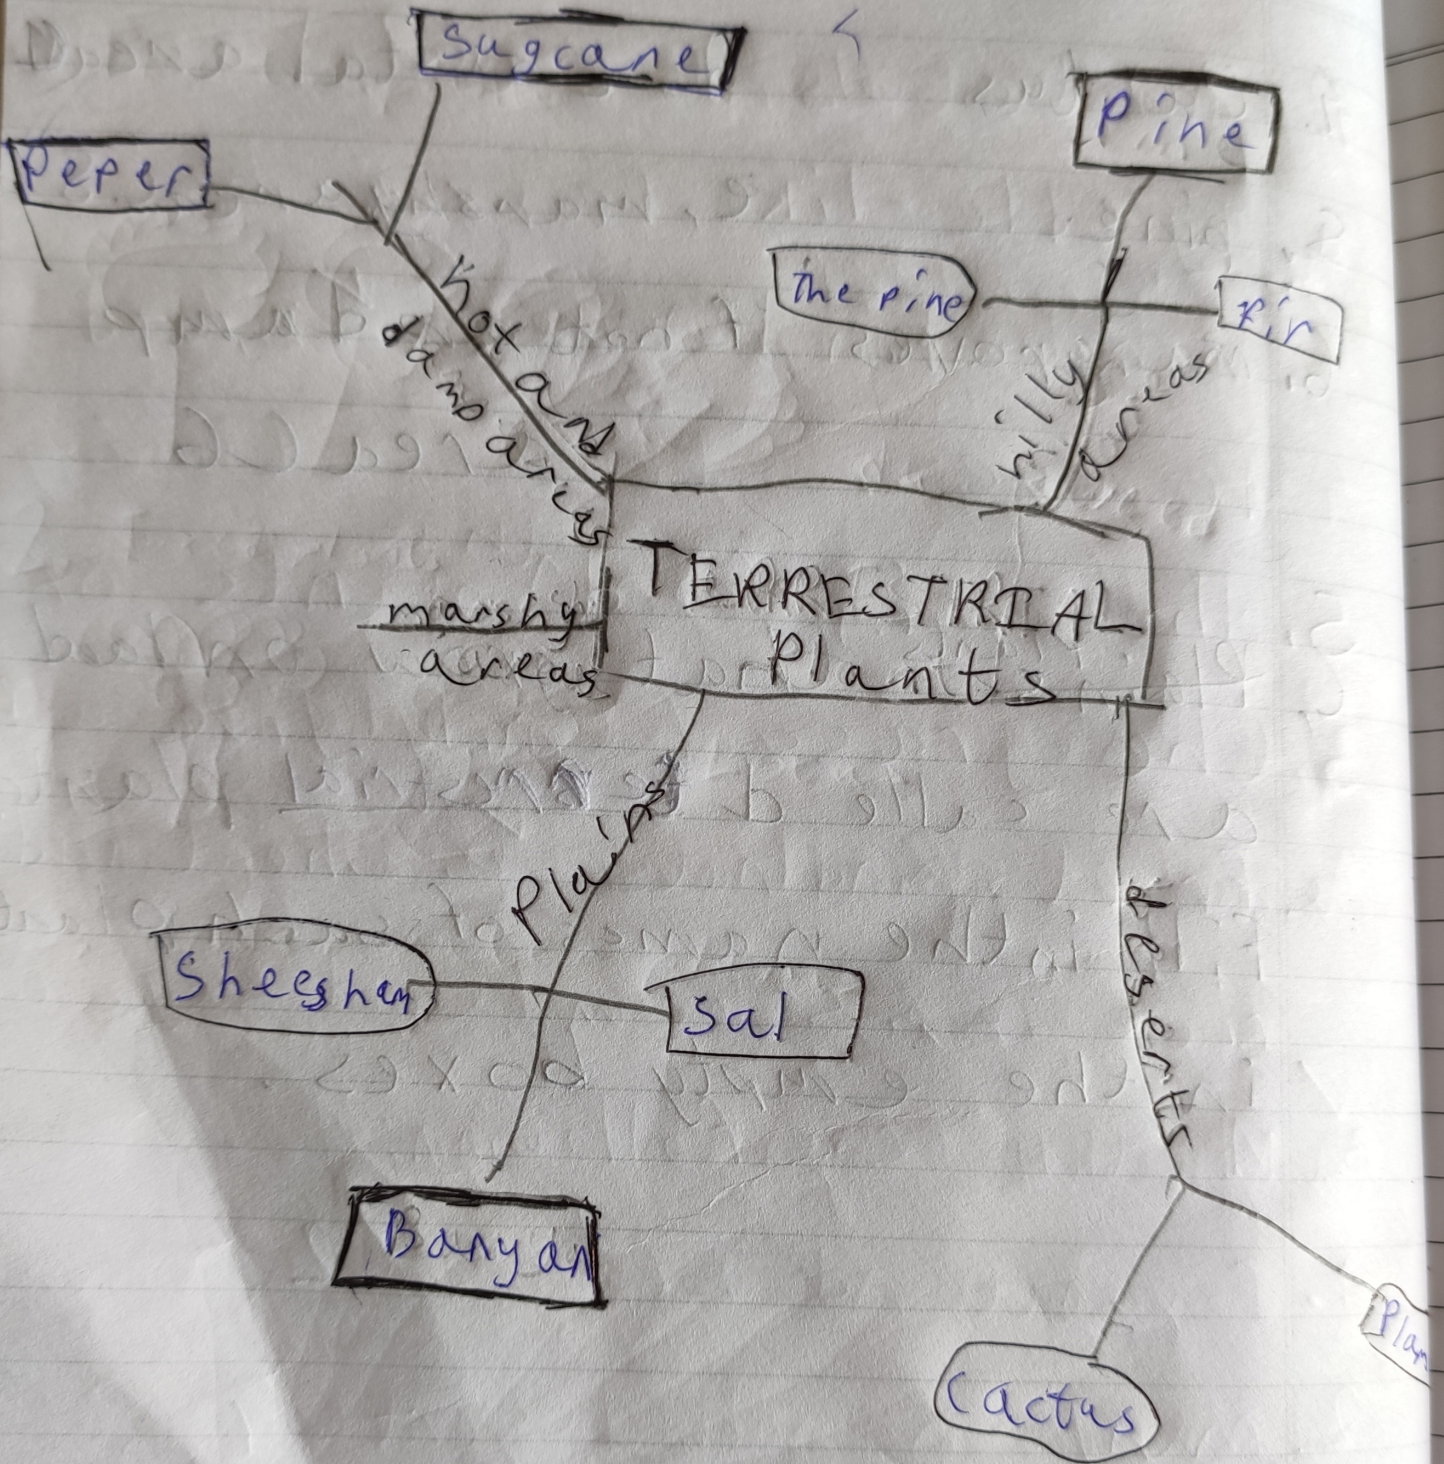 Sugcane
Pine
Peper
The pine
Fir
hot and
damp areas
hilly
areas
TERRESTRIAL
Plants
marshy
areas
Plains
deserts
Sheesham
Sal
Banyan
Cactus